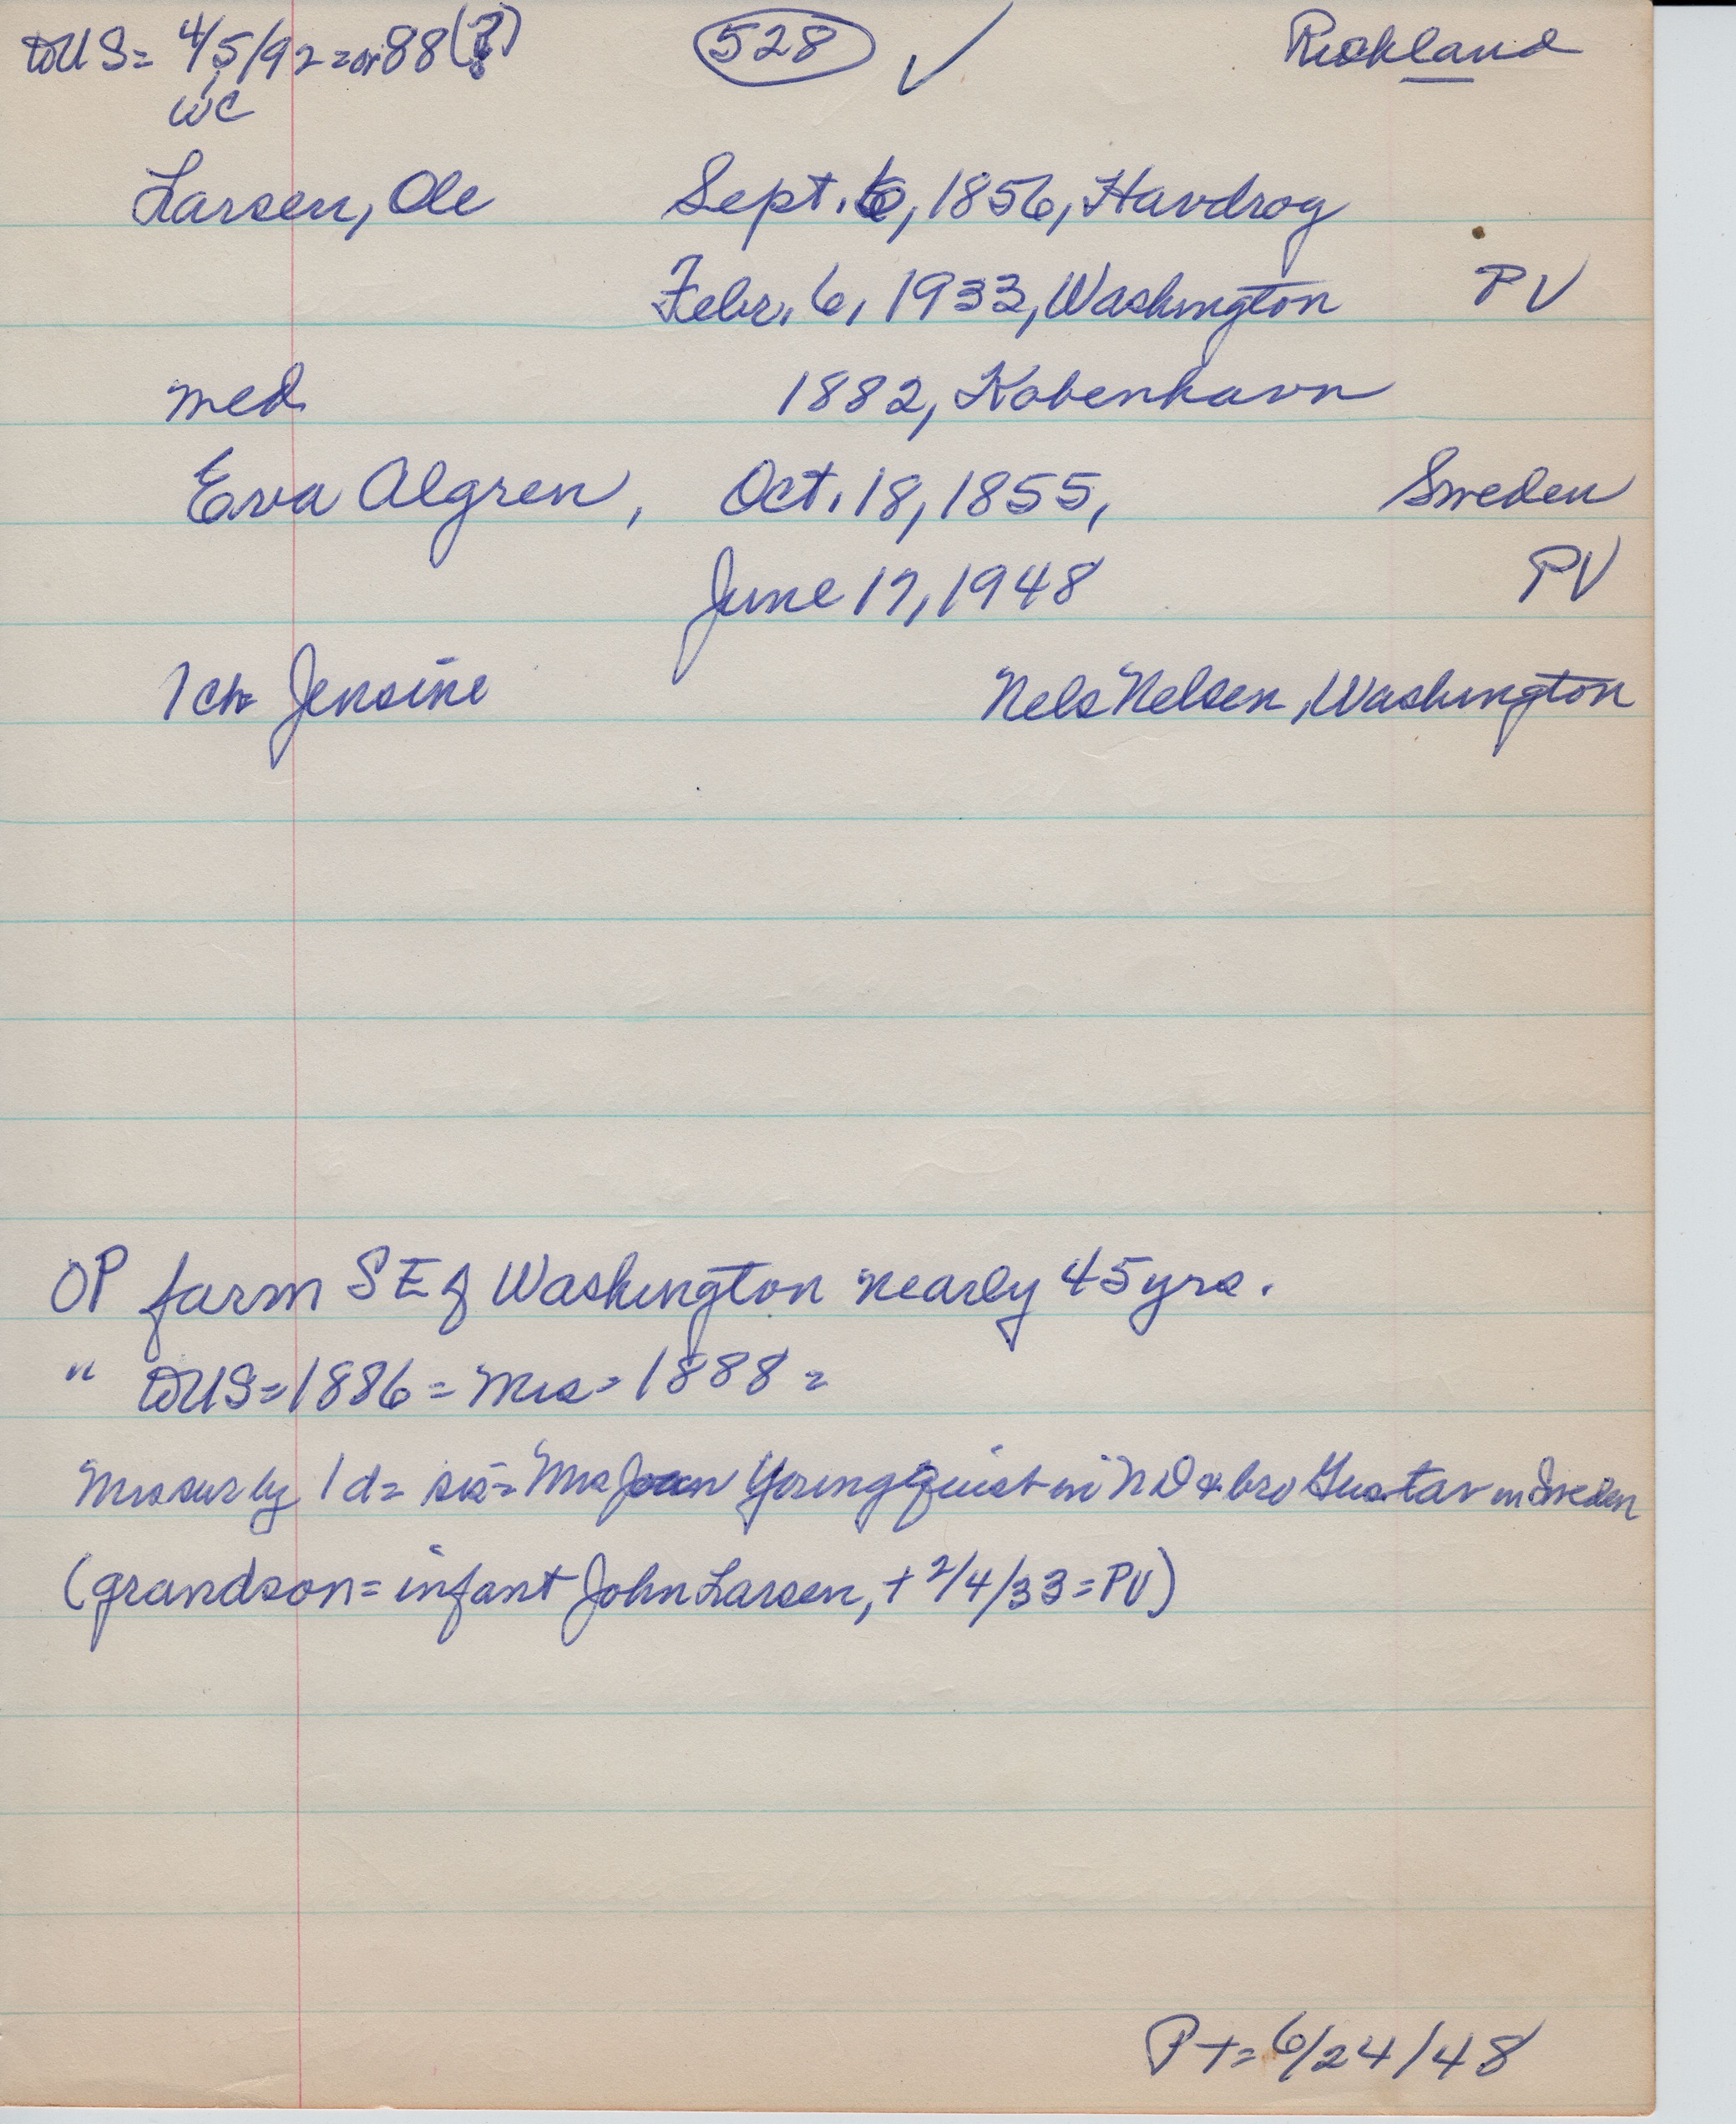 to US = 4/5/92 = or 88 (?) 528 ✓ Rickland
WC
Larsen, Ole Sept. 6, 1856, Havdrog
Febr. 6, 1933, Washington PV
med 1882, Kobenhavn
Eva Algren, Oct. 18, 1855, Sweden
June 17, 1948 PV
1 ch= Jensine Nels Nelsen, Washington
OP farm SE of Washington nearly 45 yrs.
" to US = 1886 = Mrs = 1888 =
Mrs sur by 1 d = sis = Mrs Youngquist in ND & bro Gustav in Sweden
(grandson = infant John Larsen, + 2/4/33 = PV)
P + = 6/24/48